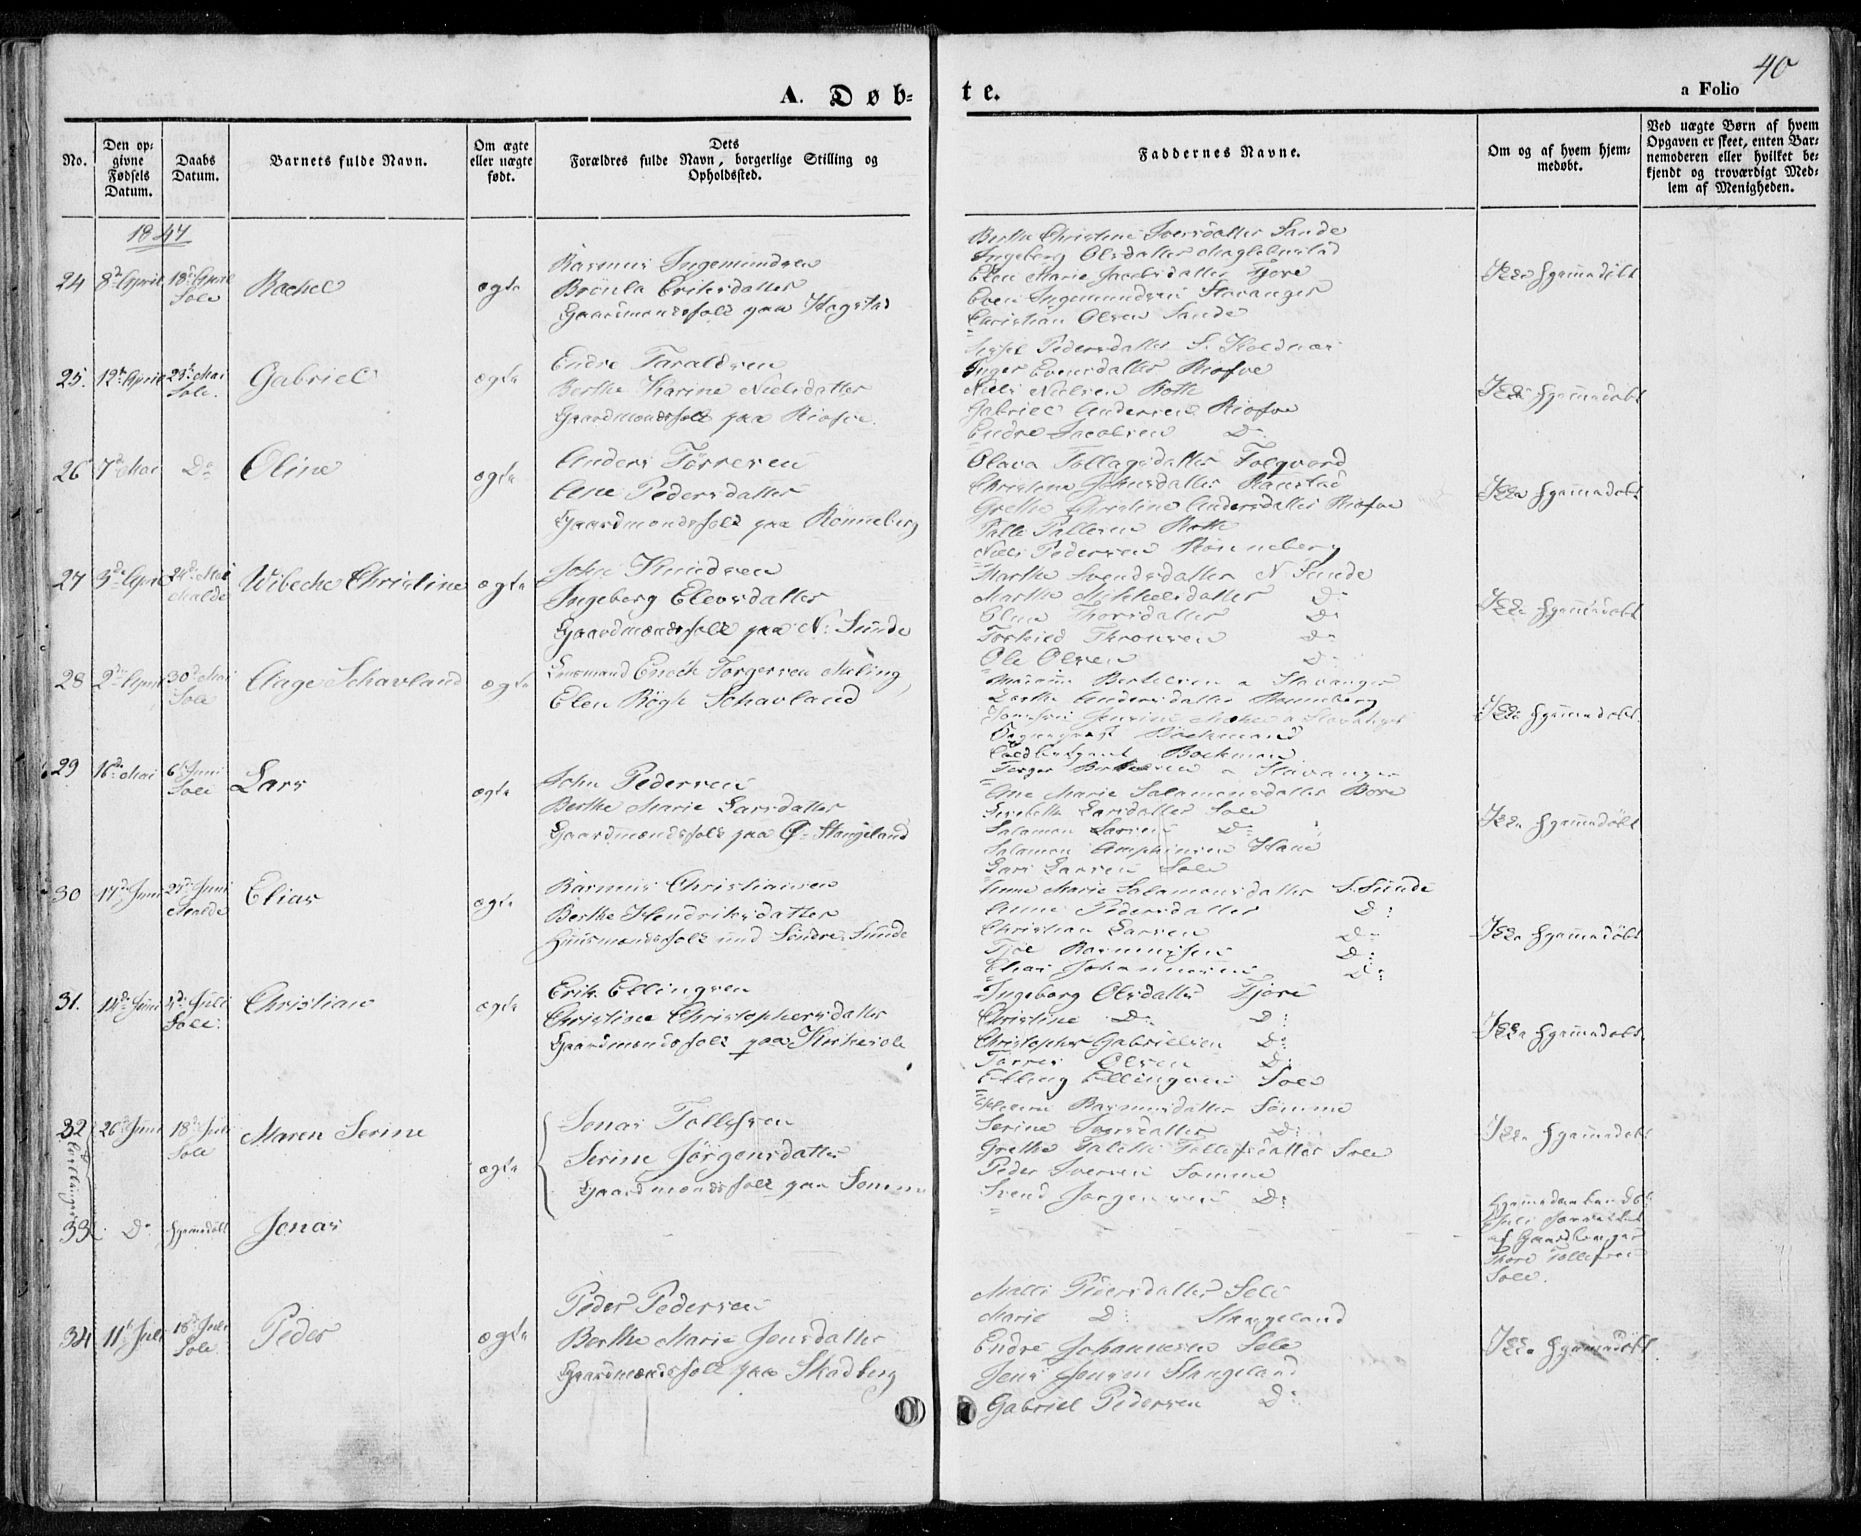 40
A. Døb-
te.
a Folio
No.
Den op-
givne
Fødsels
Datum.
Daabs
Datum.
Barnets fulde Navn.
Om ægte
eller uægte
født.
Dets
Forældres fulde Navn, borgerlige Stilling og
Opholdssted.
Faddernes Navne.
Om og af hvem hjem-
medøbt.
Ved uægte Børn af hvem
Opgaven er skeet, enten Bar-
nemoderen eller hvilket be-
kjendt og troværdigt Med-
lem af Menigheden.
1847
24 8de April 18de April
Sole
Rachel
ægte
Rasmus Ingemundsen
Eriksdatter
Gaardmandsfolk paa Hagstad
Berthe Christine Iversdatter Sande
Ingeborg Olsdatter
Elen Marie Jacobsdatter Tjore
Even Ingemundsen Stavanger
Christian Olsen Sande
Ikke hjemmedøbt
25. 12te April 23de Mai
Sole.
Gabriel
ægte
Endre Taraldsen
Berthe Karine Nielsdatter
Gaardmandsfolk paa Risfoe.
Sissel Pedersdatter S. Koldnæs
Inger Evensdatter Risfoe
Niels Nielsen Rott
Gabriel Andersen Risfoe
Endre Jacobsen Do
Ikke hjemmedøbt
26 7de Mai Do
Oline
ægte
Anders Törresen
Ane Pedersdatter
Gaardmandsfolk paa Rönneberg
Olava Tollagsdatter
Christine Johnsdatter Harestad
Grethe Christine Andersdatter Risfoe
Palle Pallesen Rott
Niels Pedersen Rönneberg
Ikke hjemmedøbt
27 3de April 24de Mai
Malde
Wibecke Christine
ægte
John Knudsen
Ingeborg Elevsdatter
Gaardmandsfolk paa N. Sunde
Marthe Svendsdatter N. Sunde
Marthe Mikkelsdatter Do
Thorsdatter Do
Torkild Thronsen Do
Ole Olsen Do
Ikke hjemmedøbt
28 2de April 30de Mai
Sole
Aage Schavland
ægte
Lensmand Enoch Torgersen Meling,
Elen Bögh Schavland
Bertelsen a Stavanger
Dorthe Andersdatter Rönneberg
Jensine
Bockmand
Bockman
Torger Bertelsen a Stavanger
Ikke hjemmedøbt
29 16de Mai 6te Juni
Sole
Lars
ægte
John Pedersen
Berthe Marie Larsdatter
Gaardmandsfolk paa Ø. Stangeland
Ane Marie Salamonsdatter Bore
Larsdatter Sole
Salamon Larsen Do
Salamon Hane
Lars Larsen Sole
Ikke hjemmedøbt
30 17de Juni 27de Juni
Malde
Elias
ægte
Rasmus Christiansen
Berthe Hendriksdatter
Huusmandsfolk und Söndre Sunde
Anne Marie Salamonsdatter S. Sunde
Anne Pedersdatter Do
Christian Larsen Do
Rasmussen Do
Elias Johannessen Do
Ikke hjemmedøbt
31. 14de Juni 4de Juli
Sole.
Christian
ægte
Erik Ellingsen
Christine Christophersdatter
Gaardmandsfolk paa Kirkesole
Ingeborg Olsdatter Tjore
Christine Do Do
Christopher Gabrielsen Do
Torres Olsen Do
Elling Ellingsen Sole
Ikke hjemmedøbt
32 26de Juni 18de Juli
Sole
Maren Serine
ægte
Jonas Tollefsen
Serine Jörgensdatter
Gaardmandsfolk paa Somme
Rasmusdatter Sömme
Serine Iversdatter Do
Grethe Tollefsdatter Sole
Peder Iversen Somme
Svend Jorgensen Do
Ikke hjemmedøbt
Tvillinger
33 Do hjemmedøbt
Jonas
Juli
af Gaardbruger
Thore Tollefsen
Sole.
34 11te Juli 18de Juli
Sole
Peder
ægte
Peder Pedersen
Berthe Marie Jonsdatter
Gaardmandsfolk paa Skadberg
Malli Pedersdatter Sele
Marie Do Stangeland
Endre Johannesen Sele
Jens Jensen Stangeland
Gabriel Pedersen Do
Ikke hjemmedøbt